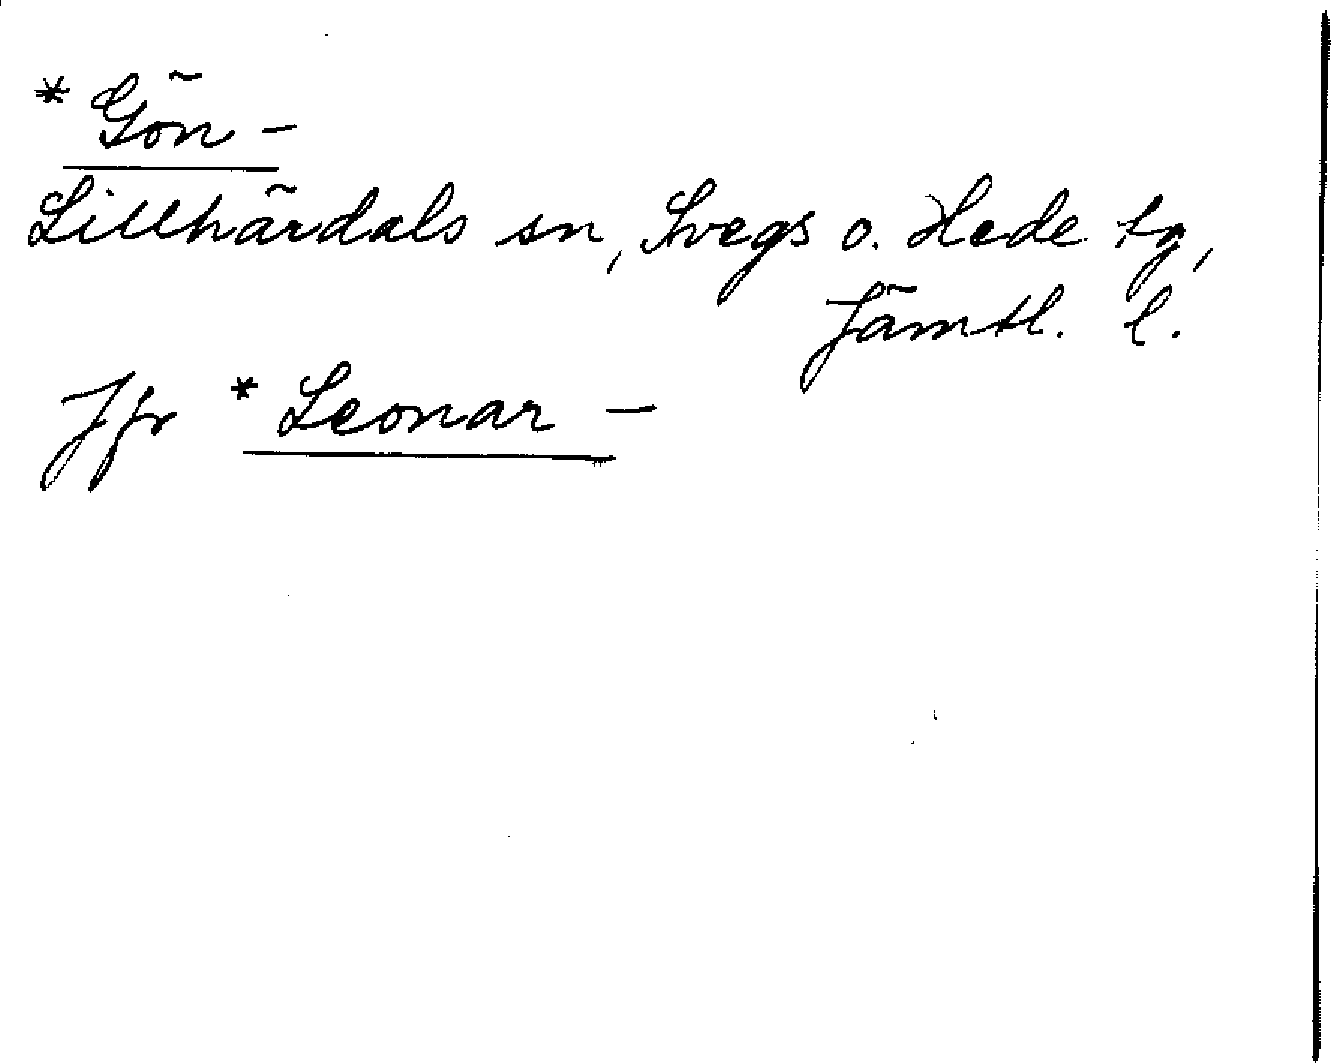 * Gön -
Lillhärdals sn, Svegs o. Hede tg,
Jämtl. l.
Jfr * Leonar -